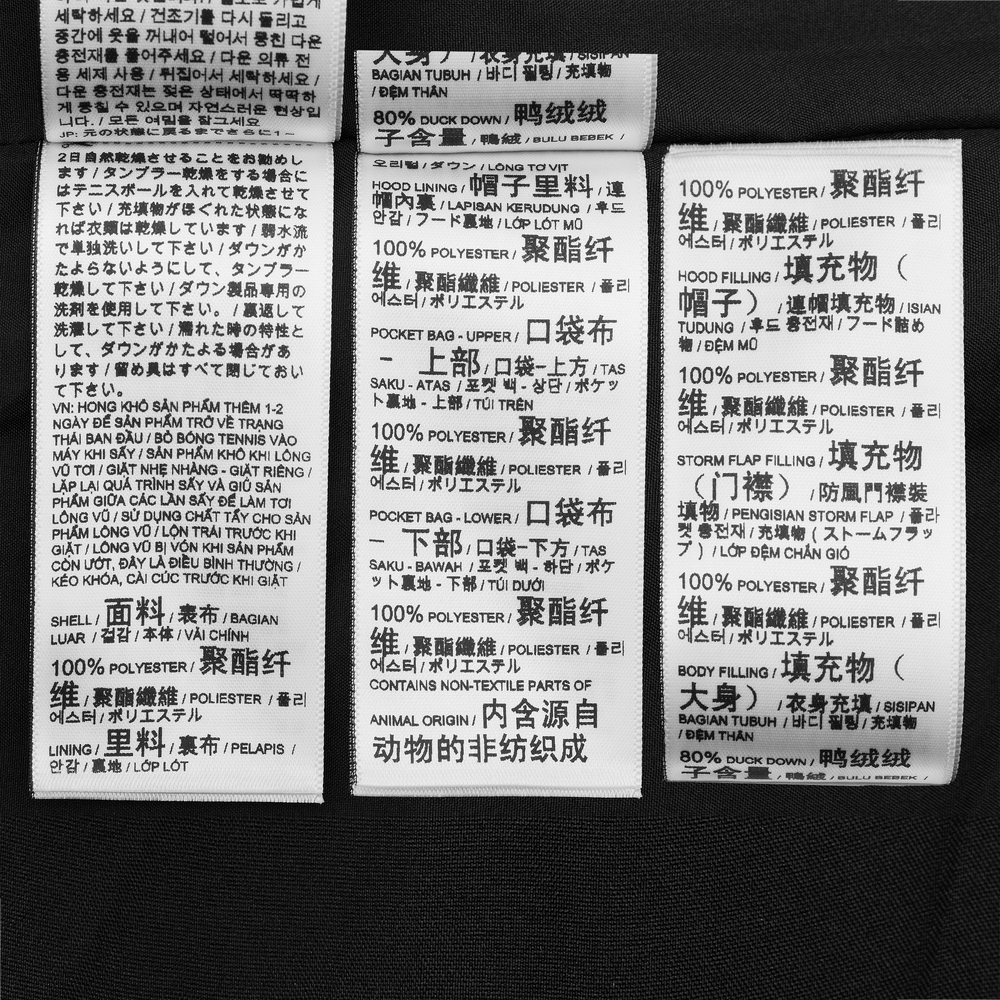 세탁하세요 / 건조기를 다시 돌리고
중간에 옷을 꺼내어 털어서 뭉친 다운
충전재를 풀어주세요 / 다운 의류 전
용 세제 사용 / 뒤집어서 세탁하세요 /
다운 충전재는 젖은 상태에서 딱딱하
게 뭉칠 수 있으며 자연스러운 현상입
니다. / 모든 여밈을 잠그세요
JP: 元の状態に戻るまでさらに1~
2日自然乾燥させることをお勧めし
ます / タンブラー乾燥をする場合に
はテニスボールを入れて乾燥させて
下さい / 充填物がほぐれた状態にな
れば衣類は乾燥しています / 弱水流
で単独洗いして下さい / ダウンがか
たよらないようにして、タンブラー
乾燥して下さい / ダウン製品専用の
洗剤を使用して下さい。 / 裏返して
洗濯して下さい / 濡れた時の特性と
して、ダウンがかたよる場合があ
ります / 留め具はすべて閉じておい
て下さい。
VN: HONG KHÔ SẢN PHẨM THÊM 1-2
NGÀY ĐỂ SẢN PHẨM TRỞ VỀ TRẠNG
THÁI BAN ĐẦU / BỎ BÓNG TENNIS VÀO
MÁY KHI SẤY / SẢN PHẨM KHÔ KHI LÔNG
VŨ TƠI / GIẶT NHẸ NHÀNG - GIẶT RIÊNG /
LẶP LẠI QUÁ TRÌNH SẤY VÀ GIŨ SẢN
PHẨM GIỮA CÁC LẦN SẤY ĐỂ LÀM TƠI
LÔNG VŨ / SỬ DỤNG CHẤT TẨY CHO SẢN
PHẨM LÔNG VŨ / LỘN TRÁI TRƯỚC KHI
GIẶT / LÔNG VŨ BỊ VÓN KHI SẢN PHẨM
CÒN ƯỚT, ĐÂY LÀ ĐIỀU BÌNH THƯỜNG /
KÉO KHÓA, CÀI CÚC TRƯỚC KHI GIẶT
SHELL / 面料 / 表布 / BAGIAN
LUAR / 겉감 / 本体 / VẢI CHÍNH
100% POLYESTER / 聚酯纤
维 / 聚酯纖維 / POLIESTER / 폴리
에스터 / ポリエステル
LINING / 里料 / 裏布 / PELAPIS /
안감 / 裏地 / LỚP LÓT
大身） / 衣身充填 / SISIPAN
BAGIAN TUBUH / 바디 필링 / 充填物
/ ĐỆM THÂN
80% DUCK DOWN / 鸭绒绒
子含量 / 鴨絨 / BULU BEBEK /
오리털 / ダウン / LÔNG TƠ VỊT
HOOD LINING / 帽子里料 / 連
帽內裏 / LAPISAN KERUDUNG / 후드
안감 / フード裏地 / LỚP LÓT MŨ
100% POLYESTER / 聚酯纤
维 / 聚酯纖維 / POLIESTER / 폴리
에스터 / ポリエステル
POCKET BAG - UPPER / 口袋布
- 上部 / 口袋-上方 / TAS
SAKU - ATAS / 포켓 백 - 상단 / ポケッ
ト裏地 - 上部 / TÚI TRÊN
100% POLYESTER / 聚酯纤
维 / 聚酯纖維 / POLIESTER / 폴리
에스터 / ポリエステル
POCKET BAG - LOWER / 口袋布
- 下部 / 口袋-下方 / TAS
SAKU - BAWAH / 포켓 백 - 하단 / ポケ
ット裏地 - 下部 / TÚI DƯỚI
100% POLYESTER / 聚酯纤
维 / 聚酯纖維 / POLIESTER / 폴리
에스터 / ポリエステル
CONTAINS NON-TEXTILE PARTS OF
ANIMAL ORIGIN / 内含源自
动物的非纺织成
100% POLYESTER / 聚酯纤
维 / 聚酯纖維 / POLIESTER / 폴리
에스터 / ポリエステル
HOOD FILLING / 填充物（
帽子） / 連帽填充物 / ISIAN
TUDUNG / 후드 충전재 / フード詰め
物 / ĐỆM MŨ
100% POLYESTER / 聚酯纤
维 / 聚酯纖維 / POLIESTER / 폴리
에스터 / ポリエステル
STORM FLAP FILLING / 填充物
（门襟） / 防風門襟裝
填物 / PENGISIAN STORM FLAP / 플라
켓 충전재 / 充填物 ( ストームフラッ
プ ) / LỚP ĐỆM CHẮN GIÓ
100% POLYESTER / 聚酯纤
维 / 聚酯纖維 / POLIESTER / 폴리
에스터 / ポリエステル
BODY FILLING / 填充物（
大身） / 衣身充填 / SISIPAN
BAGIAN TUBUH / 바디 필링 / 充填物
/ ĐỆM THÂN
80% DUCK DOWN / 鸭绒绒
子含量 / 鴨絨 / BULU BEBEK /